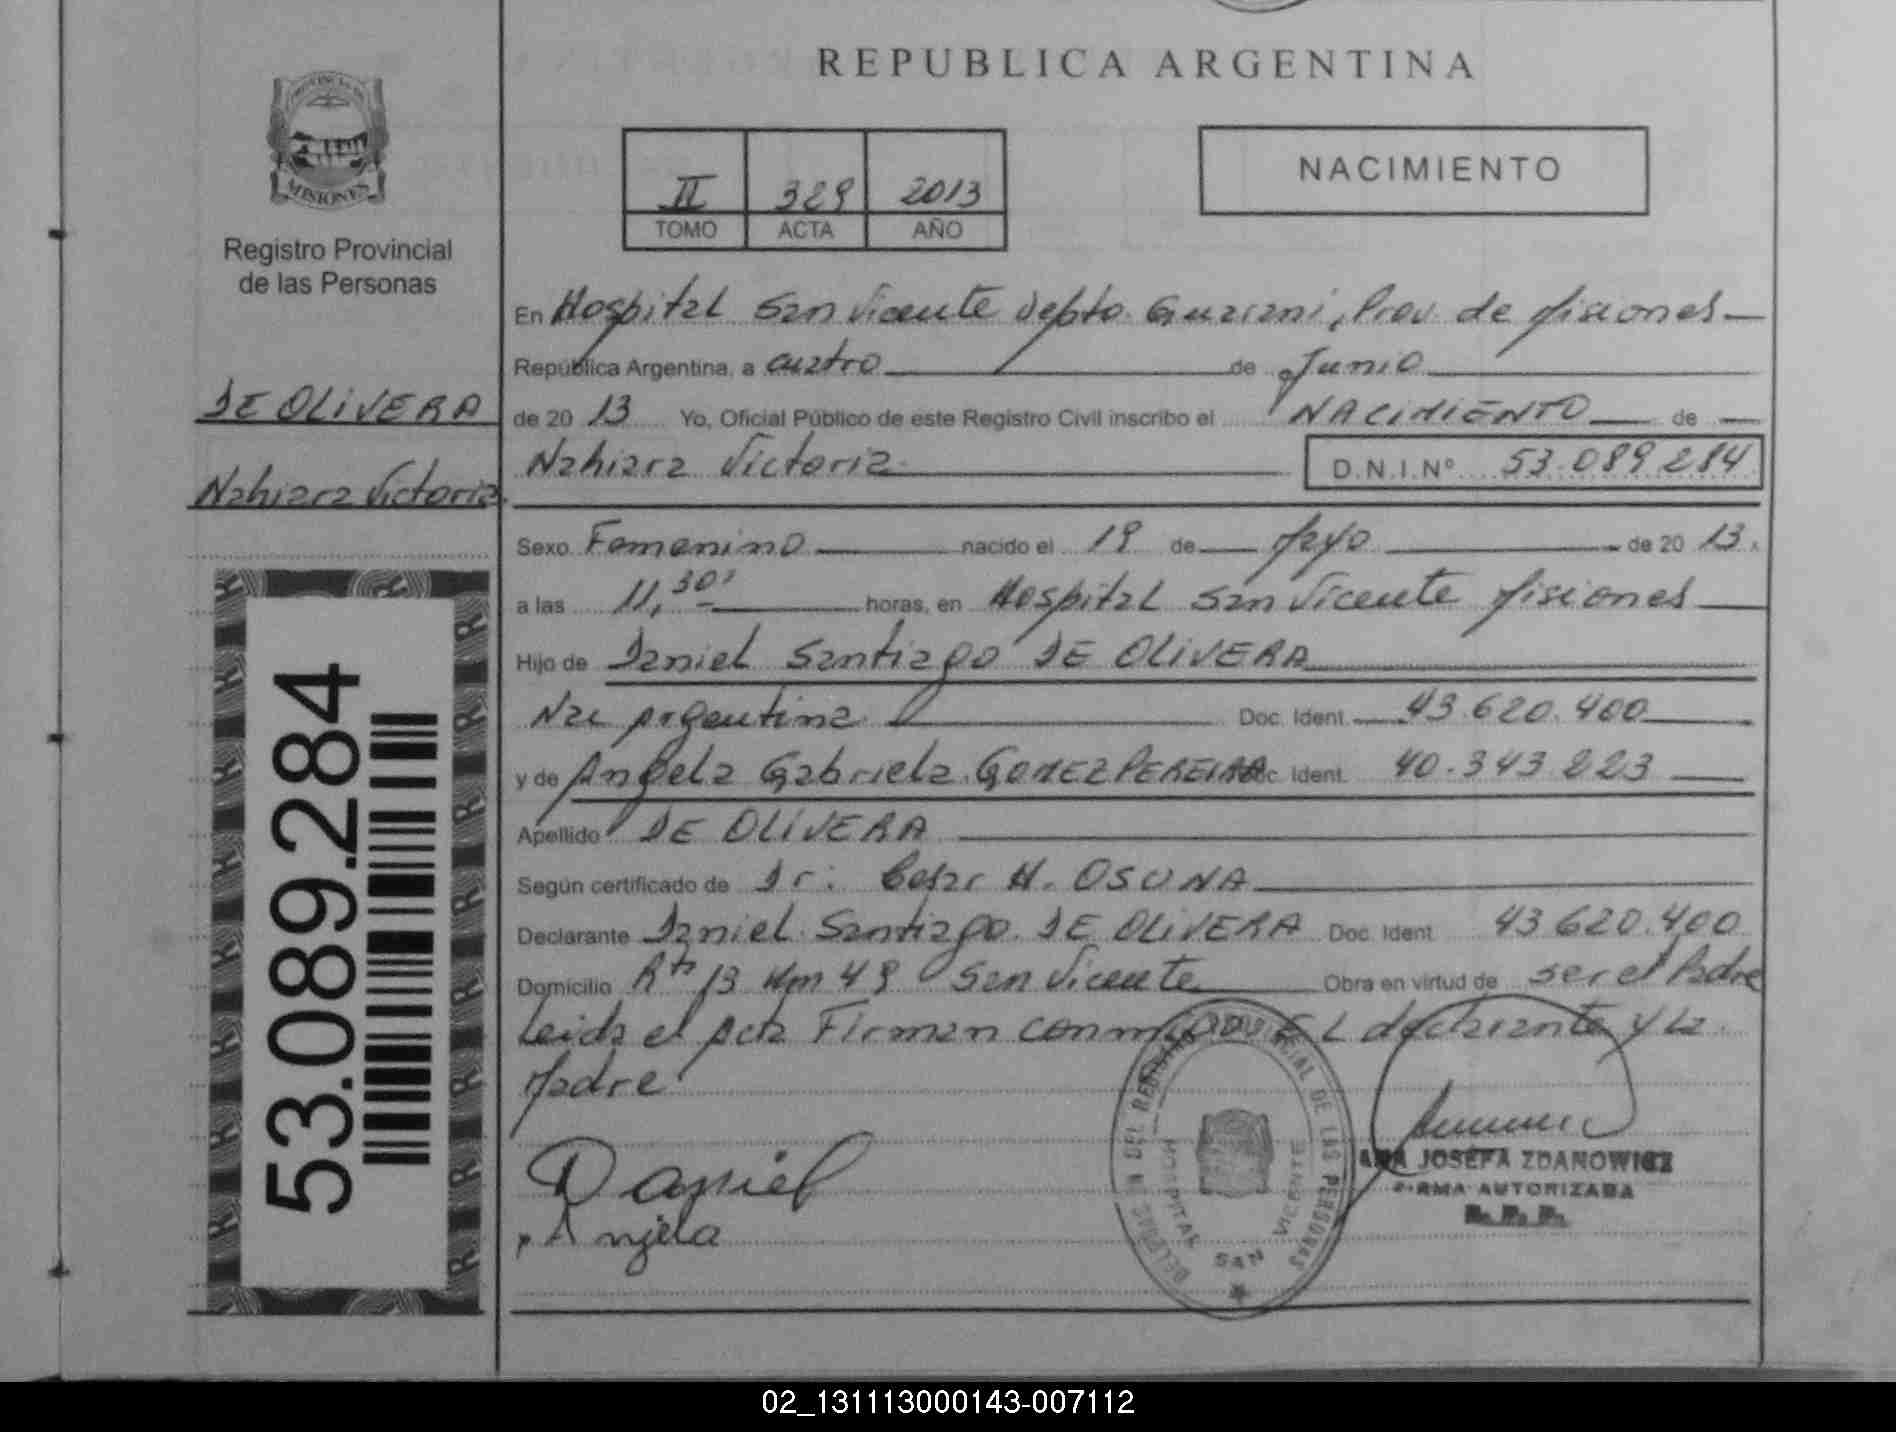 REPUBLICA ARGENTINA
PROVINCIA DE
MISIONES
Registro Provincial
de las Personas
DE OLIVERA
Nahiara Victoria
53.089.284
II 329 2013
TOMO ACTA AÑO
NACIMIENTO
En Hospital San Vicente Depto. Guarani, Prov. de Misiones
República Argentina, a cuatro de Junio
de 20 13 Yo, Oficial Público de este Registro Civil inscribo el NACIMIENTO de
Nahiara Victoria D.N.I.Nº 53.089.284
Sexo Femenino nacido el 19 de Mayo de 20 13.
a las 11,30' horas, en Hospital San Vicente Misiones
Hijo de Daniel Santiago DE OLIVERA
Nac Argentina Doc. Ident. 43.620.400
y de Angela Gabriela GOMEZ PEREIRA Doc. Ident. 40.343.223
Apellido DE OLIVERA
Según certificado de Dr: Cesar H. OSUNA
Declarante Daniel Santiago DE OLIVERA Doc. Ident. 43620.400
Domicilio Rta 13 Km 49 San Vicente Obra en virtud de ser el Padre
Leida el Acta Firman conmigo EL declarante y La
Madre
Daniel
Angela
DEL REGISTRO PROVINCIAL DE LAS PERSONAS
HOSPITAL SAN VICENTE
ANA JOSEFA ZDANOWICZ
FIRMA AUTORIZADA
R. P. P.
02_131113000143-007112